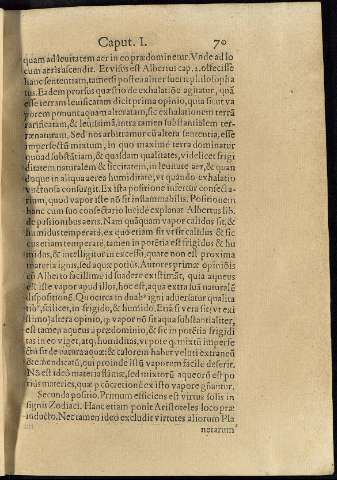 Caput. I. 70
quam ad leuitatem aer in eo prædominetur. Vnde ad lo
cum aeris ascendit. Et visus est Albertus cap. 1. offecisse
hanc sententiam, tametsi postea aliter fuerit philosopha
tus. Eadem prorsus quæstio de exhalatiõe agitatur, quã
esse terram leuificatam dicit prima opinio, quia sicut va
porem ponunt aquam alteratam, sic exhalationem terrã
rarificatam, & leuissimã, intra tamen substantialem ter-
ræ naturam. Sed nos arbitramur cũ altera sententia, esse
imperfectũ mixtum, in quo maxime terra dominatur
quoad substãtiam, & quasdam qualitates, videlicet frigi
ditatem naturalem & siccitatem, in leuitate aer, & quan
doque in aliqua aerea humiditate, vt quando exhalatio
vnctuosa consurgit. Ex ista positione infertur consectari
rium, quod vapor iste nõ sit inflammabilis. Positionem
hanc cum suo consectario lucide explanat Albertus lib.
de passionibus aeris. Nam quãquam vapor calidus sit, &
humidus temperatè, ex quo etiam sit vt sit calidus & sic
cus etiam temperatè, tamen in potẽtia est frigidus & hu
midus, & intelligitur in excessũ, quare non est proxima
materia ignis, sed aquæ potius. Autores primæ opiniõis
cũ Alberto facillime id suadere existimãt, quia aqueus
est iste vapor apud illos, hoc est, aqua extra suã naturalẽ
dispositionẽ. Quocirca in duab' igni aduersatur qualita
tib', scilicet, in frigido, & humido. Etiã si vera sit, vt exi
stimo, altera opinio, q̃ vapor nõ sit aqua substantialiter,
est tamen aqueus a prædominio, & sic in potẽtia frigidi
tas in eo viget, atq; humiditas, vt pote q̃ mixtũ imperfe
ctũ sit de natura aquæ: & calorem habet veluti extraneũ
& cõmendicatũ, qui proinde istũ vaporem facile deserit.
Nõ est ideò materia flãmæ, sed mixtorũ aqueorũ est po
tius materies, quæ p cõcretionẽ ex isto vapore gñantur.
Secunda positio. Primum efficiens est virtus solis in
signis Zodiaci. Hanc etiam ponit Aristoteles loco præ
inducto. Nec tamen ideò excludit virtutes aliorum Pla
netarum